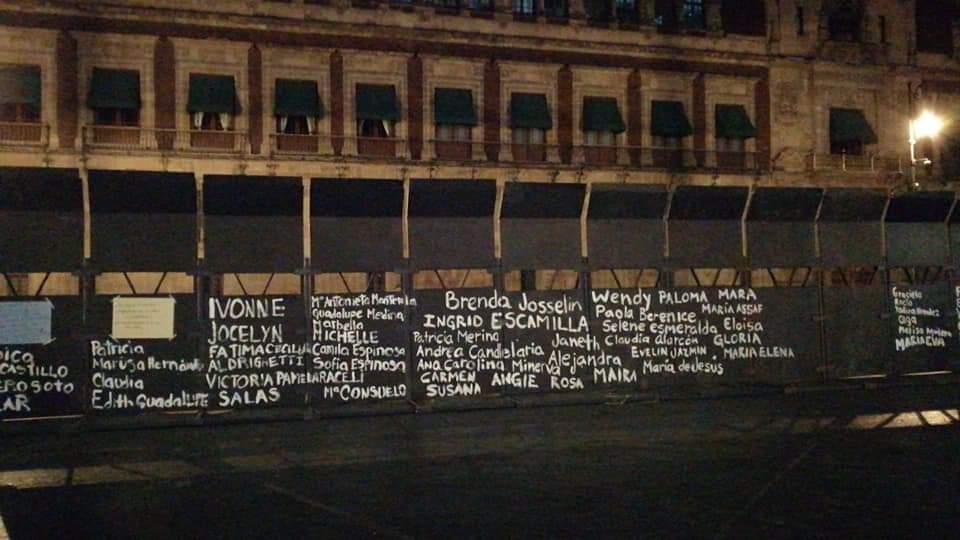 CASTILLO
SOTO
Patricia
Maruja Hernández
Claudia
Edith Guadalupe
IVONNE
JOCELYN
FATIMA CECILIA
ALDRIGHETTI
VICTORIA PAMELA
SALAS
Mª Antonieta
Guadalupe Medina
Marbella
MICHELLE
Camila Espinosa
Sofia Espinosa
ARACELI
Mª CONSUELO
Brenda Josselin
INGRID ESCAMILLA
Patricia Merino
Janeth
Andrea Candislaria
Alejandra
Ana Carolina Minerva
CARMEN ANGIE ROSA
SUSANA
Wendy PALOMA MARA
Paola Berenice MARIA ASSAF
Selene esmeralda Eloisa
Claudia alarcón GLORIA
EVELIN JAZMIN MARIA ELENA
MAIRA Maria de Jesus
Graciela
Rocio
Olga
MARIA EVA